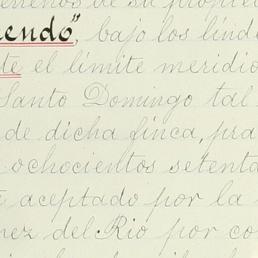 terrenos de su propied
uendo", bajo los linde
te el límite meridio
Santo Domingo tal
de dicha finca, pra
ochocientos setenta
aceptado por la
nez del Rio por co